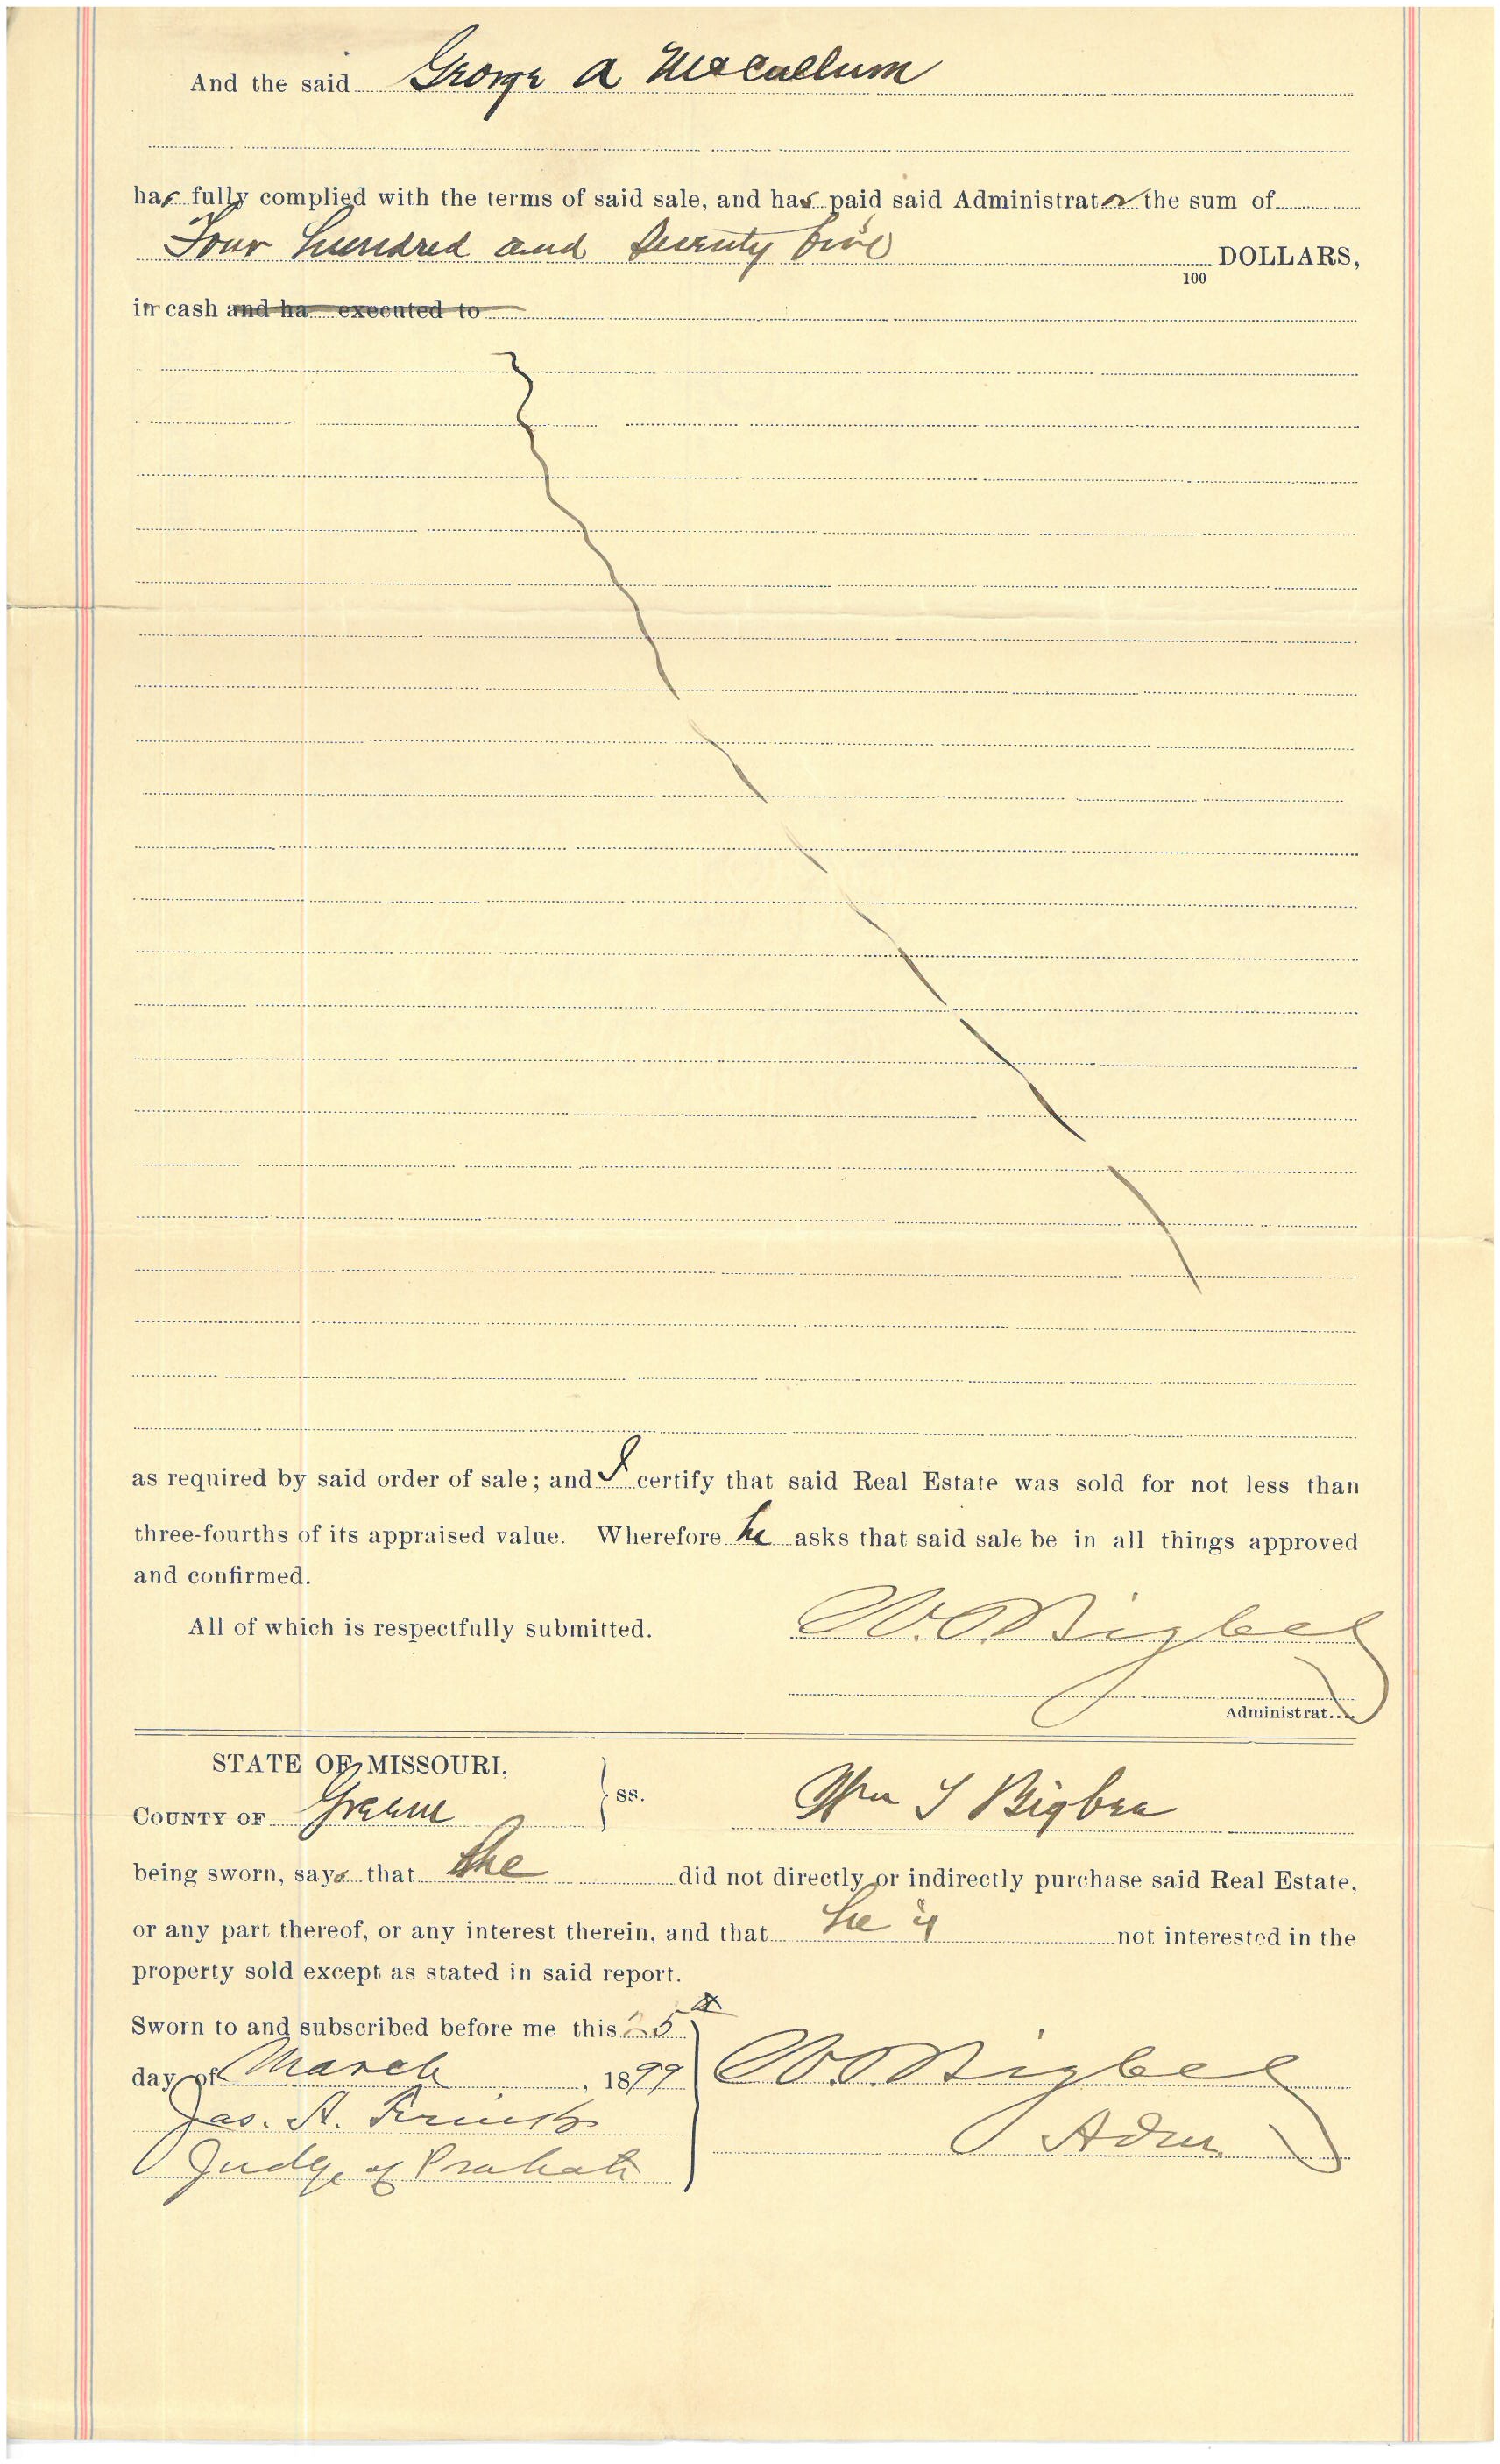 And the said George A McCallum
has fully complied with the terms of said sale, and has paid said Administrator the sum of
Four Hundred and Seventy five DOLLARS,
100
in cash and ha executed to
as required by said order of sale; and I certify that said Real Estate was sold for not less than
three-fourths of its appraised value. Wherefore he asks that said sale be in all things approved
and confirmed.
All of which is respectfully submitted.
Bigbee
Administrat
STATE OF MISSOURI,
COUNTY OF Greene ss. Wm S Bigbee
being sworn, says that he did not directly or indirectly purchase said Real Estate,
or any part thereof, or any interest therein, and that he is not interested in the
property sold except as stated in said report.
Sworn to and subscribed before me this 25th
day of March, 1899 Bigbee
Jas. A.
Admr
Judge of Probate